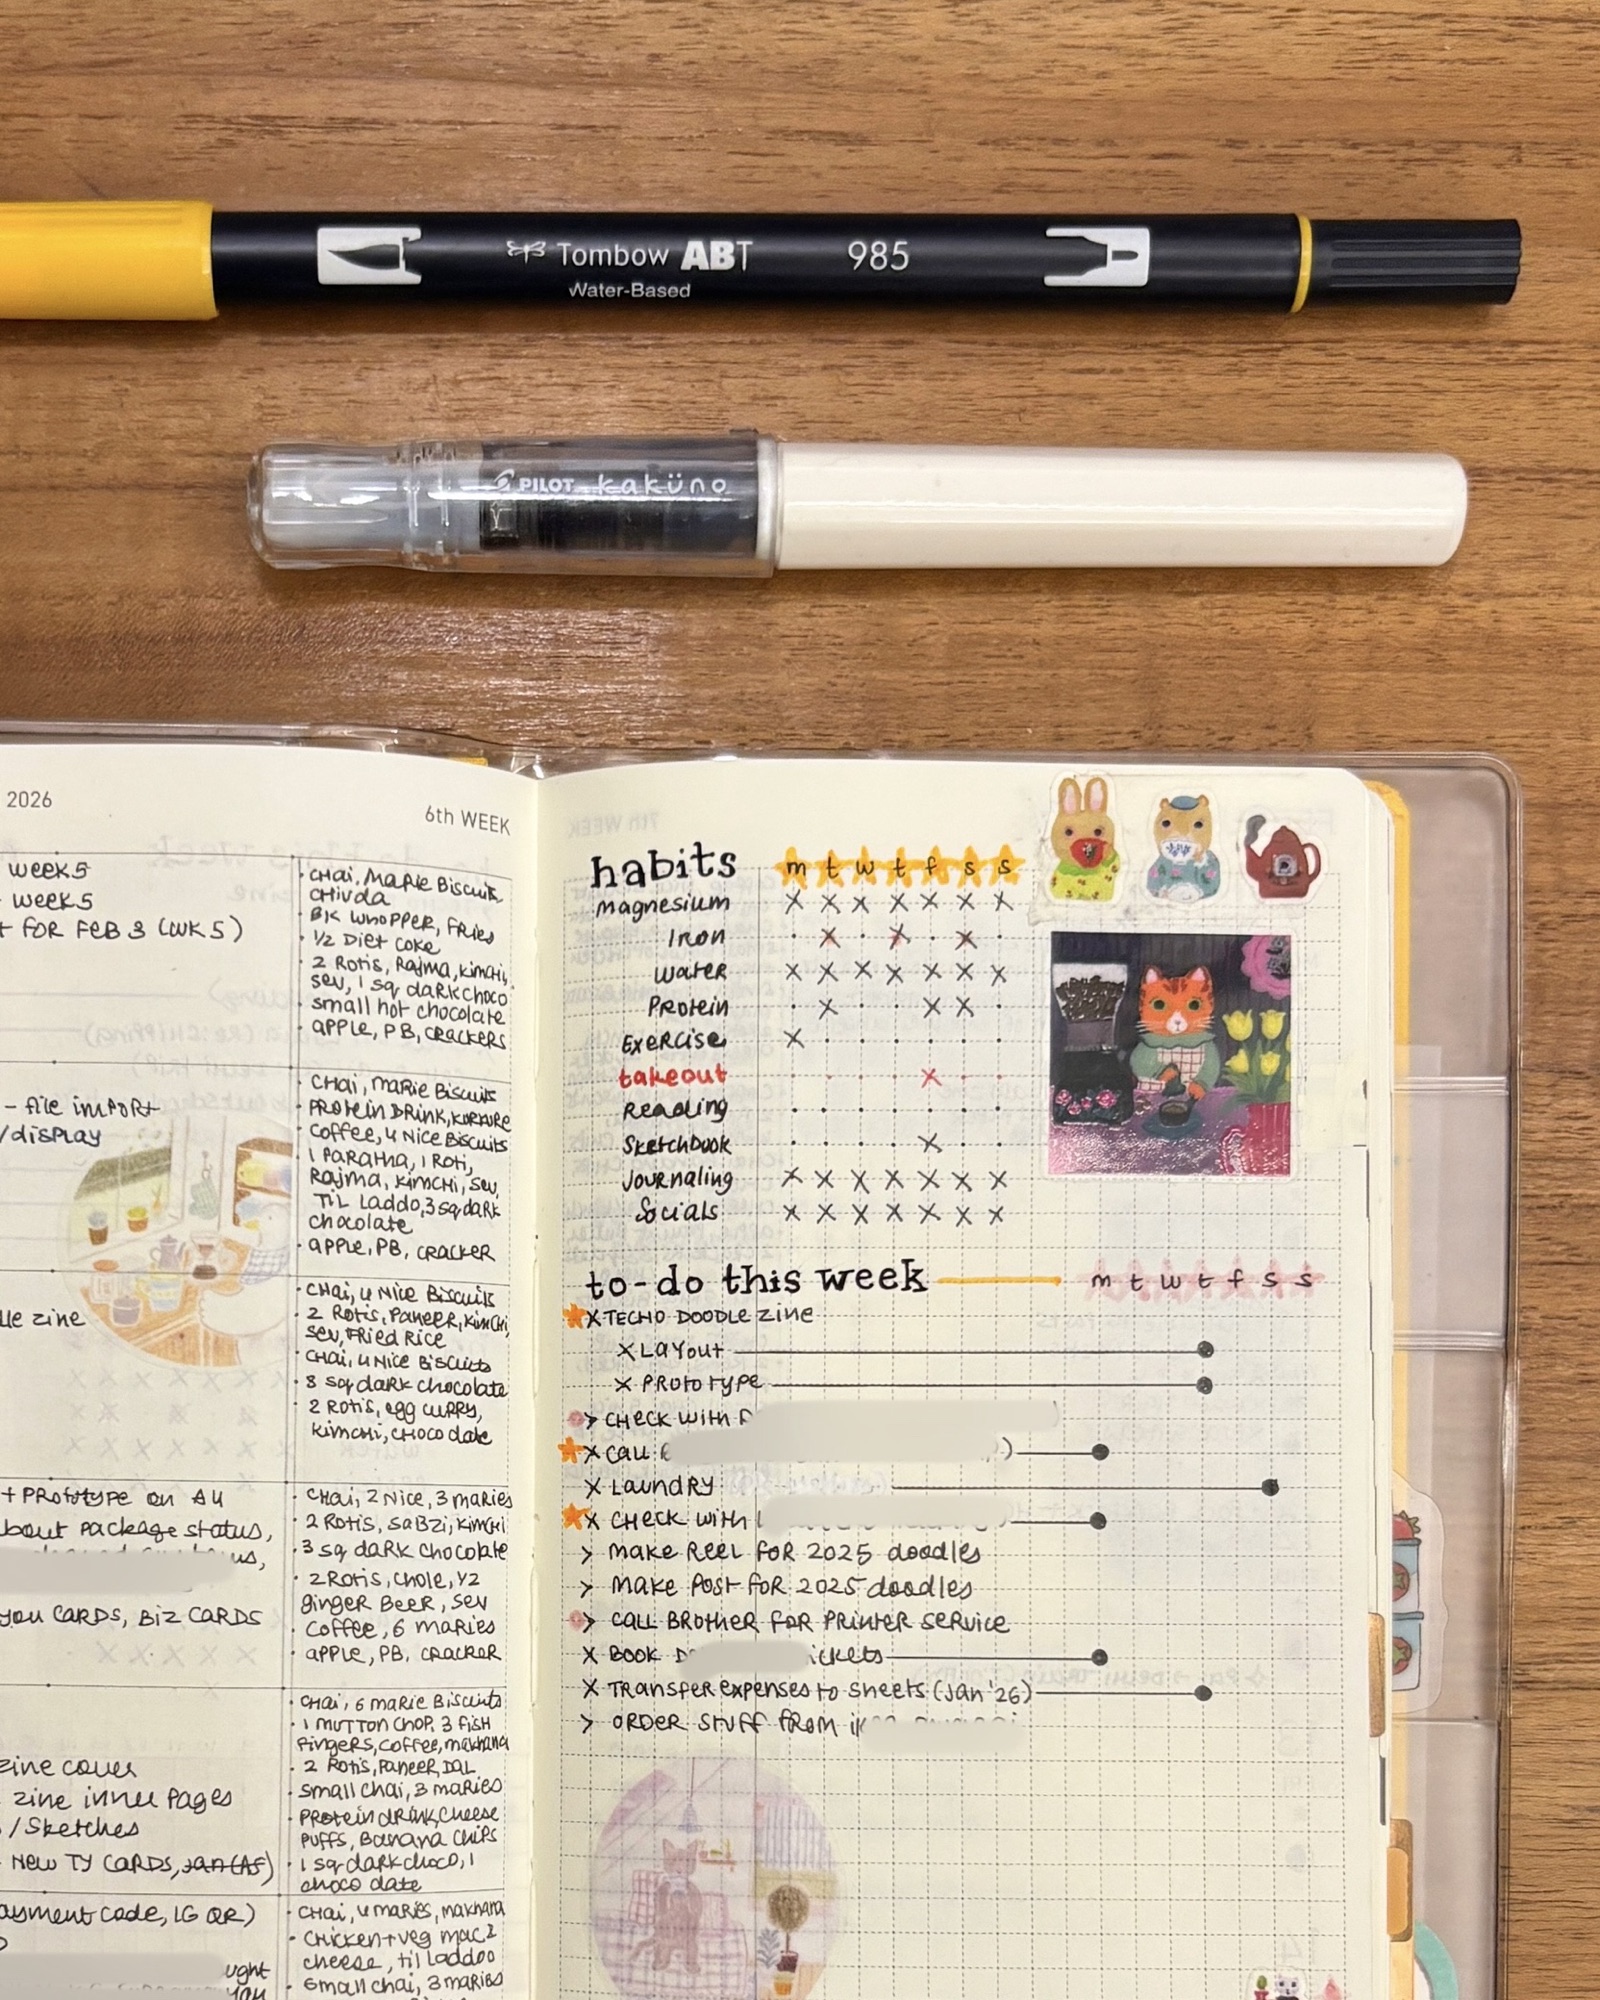 Tombow ABT 985
Water-Based
PILOT kaküno
2026
6th WEEK
week 5
week 5
FOR FEB 3 (WK 5)
- file import
/display
zine
+ Prototype on A4
bout package status,
you cards, Biz cards
zine cover
zine inner pages
/ Sketches
New TY cards, Jan (AF)
ayment code, IG QR)
ught
CHai, Marie Biscuits
CHivda
BK Whopper, Fries
1/2 Diet Coke
2 Rotis, Rajma, kimchi,
sev, 1 sq dark choco
small hot chocolate
apple, PB, crackers
CHai, Marie Biscuits
Protein Drink, kurkure
Coffee, 4 Nice Biscuits
1 Paratha, 1 Roti,
Rajma, kimchi, sev,
Til Laddo, 3 sq dark
chocolate
apple, PB, cracker
CHai, 4 Nice Biscuits
2 Rotis, Paneer, kimchi,
sev, Fried Rice
CHai, 4 Nice Biscuits
8 sq dark chocolate
2 Rotis, egg curry,
kimchi, choco date
CHai, 2 Nice, 3 maries
2 Rotis, sabzi, kimchi
3 sq dark chocolate
2 Rotis, chole, 1/2
ginger Beer, sev
Coffee, 6 maries
apple, PB, cracker
CHai, 6 marie Biscuits
1 mutton chop, 3 fish
fingers, coffee, makhana
2 Rotis, Paneer, Dal
small chai, 3 maries
Protein drink, cheese
puffs, Banana chips
1 sq dark choco, 1
choco date
CHai, 4 maries, makhana
Chicken + veg mac 2
cheese, til laddoo
small chai, 3 maries
habits m t w t f s s
magnesium X X X X X X X
Iron X X X
water X X X X X X X
Protein X X X
Exercise X
takeout X
Reading
Sketchbook X
Journaling X X X X X X X
Socials X X X X X X X
to-do this week m t w t f s s
X Techo Doodle zine
X Layout
X Prototype
> check with
X call
X Laundry
X check with
> make reel for 2025 doodles
> make post for 2025 doodles
> call Brother for printer service
X Book
X Transfer expenses to sheets (Jan '26)
> order stuff from